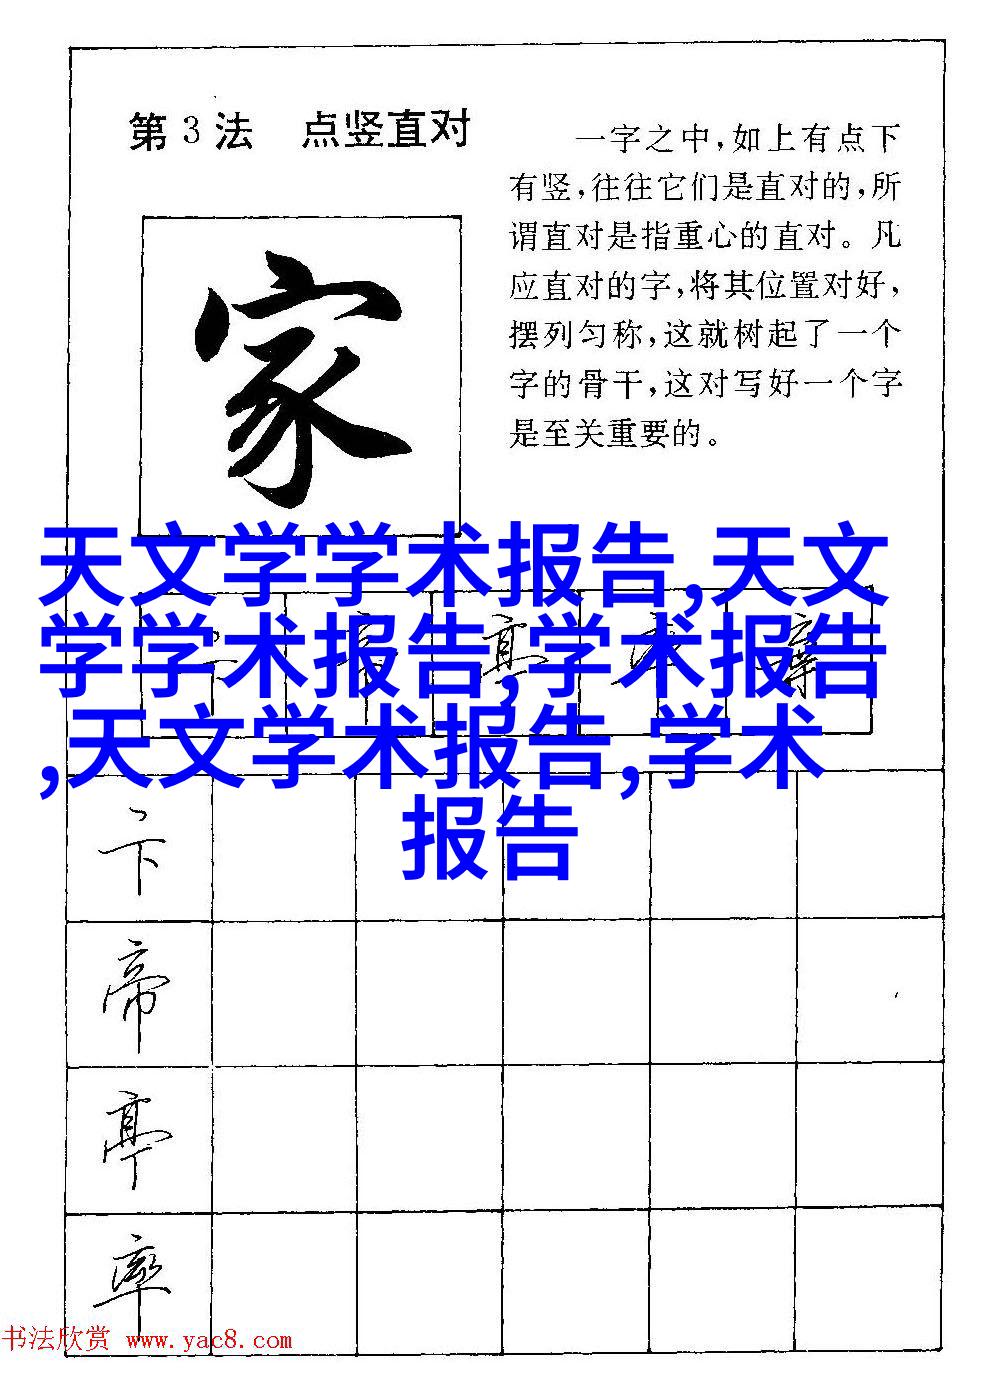 第3法 点竖直对
一字之中,如上有点下
有竖,往往它们是直对的,所
谓直对是指重心的直对。凡
应直对的字,将其位置对好,
摆列匀称,这就树起了一个
字的骨干,这对写好一个字
是至关重要的。
家
天文学学术报告,天文
学学术报告,学术报告
,天文学术报告,学术
报告
卞 帝 亭 率
卞
帝
亭
率
书法欣赏 www.yac8.com